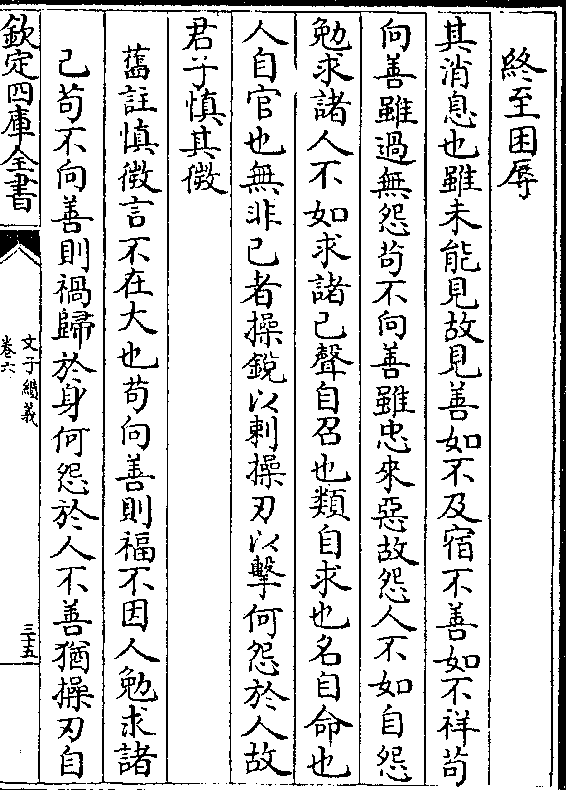 終至困辱
其消息也雖未能見故見善如不及宿不善如不祥苟
向善雖過無怨苟不向善雖忠來惡故怨人不如自怨
勉求諸人不如求諸己聲自召也類自求也名自命也
人自官也無非己者操鋭以刺操刃以擊何怨於人故
君子慎其微
舊註慎微言不在大也苟向善則福不因人勉求諸
己苟不向善則禍歸於身何怨於人不善猶操刃自
欽定四庫全書
文子纉義
卷六
三十五